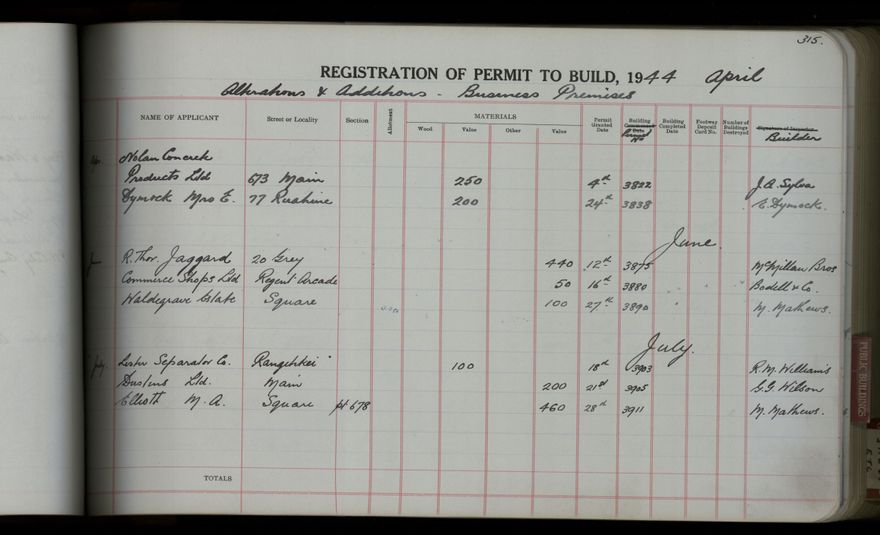 315.
REGISTRATION OF PERMIT TO BUILD, 1944 April
Alterations & Additions - Business Premises
NAME OF APPLICANT Street or Locality Section Allotment MATERIALS Permit Granted Date Building Commenced Date Permit No Building Completed Date Footway Deposit Card No. Number of Buildings Destroyed Signature of Inspector Builder
Wood Value Other Value
Apr. Nolan Concrete
Products Ltd 673 Main 250 4th 3822 J.A. Sylva
Dymock Mrs E. 77 Ruahine 200 24th 3838 E. Dymock.
June.
June R. Thor. Jaggard 20 Grey 440 12th 3875 McMillan Bros
Commerce Shops Ltd Regent Arcade 50 16th 3880 Bodell & Co.
Waldegrave Estate Square 100 27th 3890 M. Mathews.
July.
July. Lister Separator Co. Rangitikei 100 18th 3903 R.M. Williams
Dustins Ltd. Main 200 21st 3905 G.G. Wilson
Elliott M.A. Square pt 678 460 28th 3911 M. Mathews.
TOTALS
PUBLIC BUILDINGS